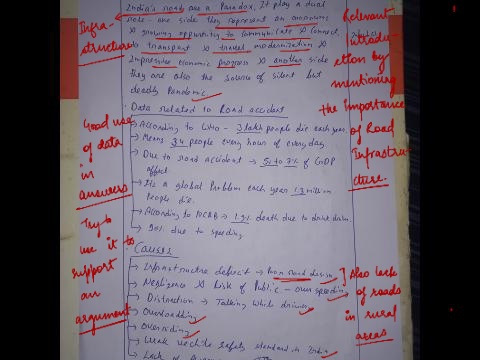 India's roads are a Paradox, It play a dual
role - one side they represent an enormous
growing oppurtinity to communicate & connect,
to transport & travel modernization &
Impressive economic progress & another side
they are also the source of silent but
deadly Pandemic.
Data related to Road accident
→ According to WHO - 3 lakh people die each year.
→ Means 34 people every hours of every day.
→ Due to road accident → 5% to 7% of GDP
effect.
→ Its a global Problem each year 1.3 million
People die.
→ According to NCRB → 1.9% death due to drink
→ 90% due to speeding
Causes
→ Infrastructure deficit → Poor road design
→ Negligence & Risk of Public - over speeding
→ Distraction → Talking while driving
→ Overloadding
→ Overriding
→ Weak vechile safety standard in India
→ Lack of
Infra-
structure
Good use
of data
in
answers
Try to
use it to
support
an
argument
Relevant
introdu-
ction by
mentioning
the Importance
of Road
Infrastru-
cture.
Also lack
of roads
in rural
areas